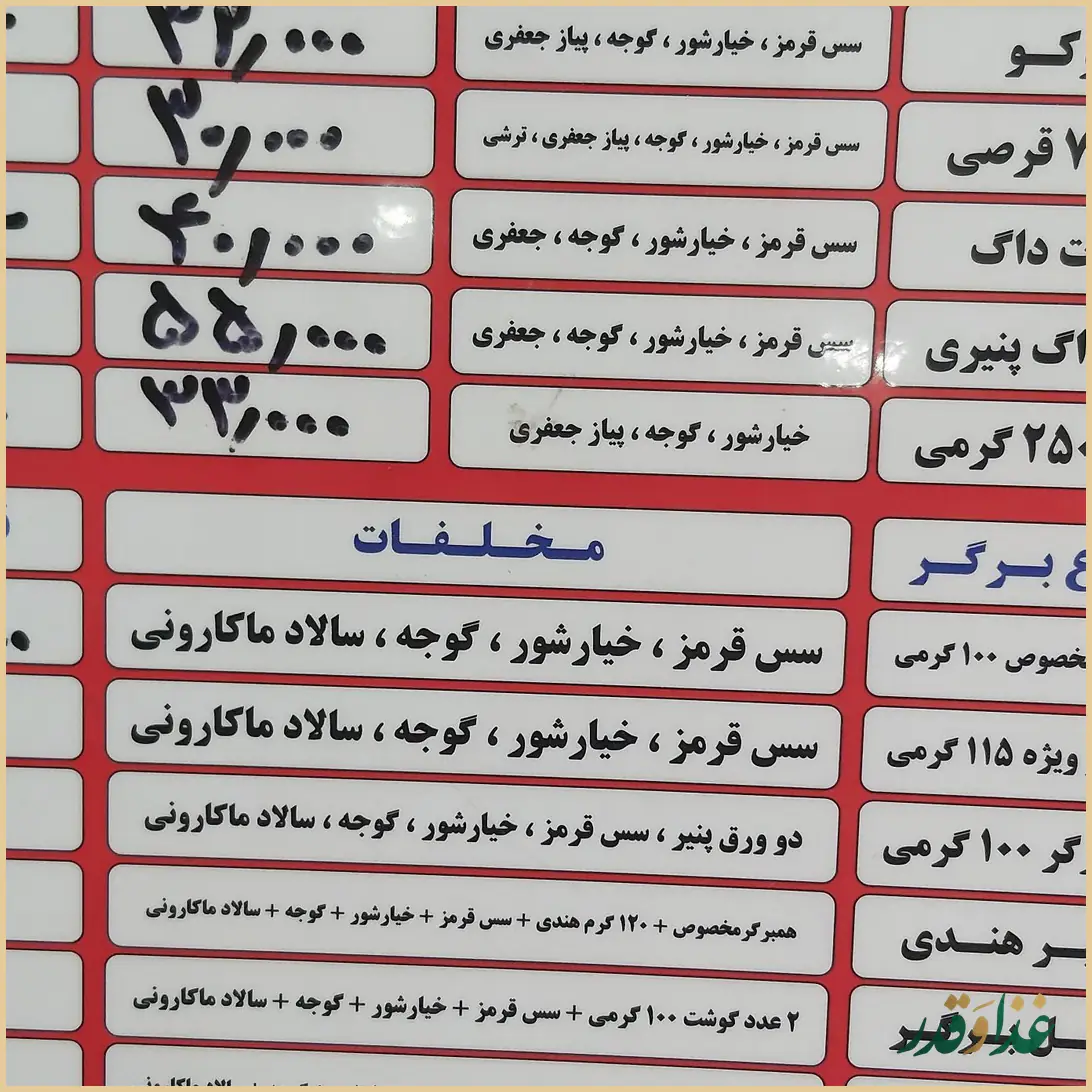 سس قرمز ، خیارشور ، گوجه ، پیاز جعفری
۷ قرصی سس قرمز ، خیارشور ، گوجه ، پیاز جعفری ، ترشی ۳۰,۰۰۰
داگ سس قرمز ، خیارشور ، گوجه ، جعفری ۴۰,۰۰۰
پنیری سس قرمز ، خیارشور ، گوجه ، جعفری ۵۵,۰۰۰
۲۵۰ گرمی خیارشور ، گوجه ، پیاز جعفری ۳۳,۰۰۰
برگر مخلفات
مخصوص ۱۰۰ گرمی سس قرمز ، خیارشور ، گوجه ، سالاد ماکارونی
ویژه ۱۱۵ گرمی سس قرمز ، خیارشور ، گوجه ، سالاد ماکارونی
۱۰۰ گرمی دو ورق پنیر ، سس قرمز ، خیارشور ، گوجه ، سالاد ماکارونی
هندی همبرگرمخصوص + ۱۲۰ گرم هندی + سس قرمز + خیارشور + گوجه + سالاد ماکارونی
۲ عدد گوشت ۱۰۰ گرمی + سس قرمز + خیارشور + گوجه + سالاد ماکارونی
غذا و قدر